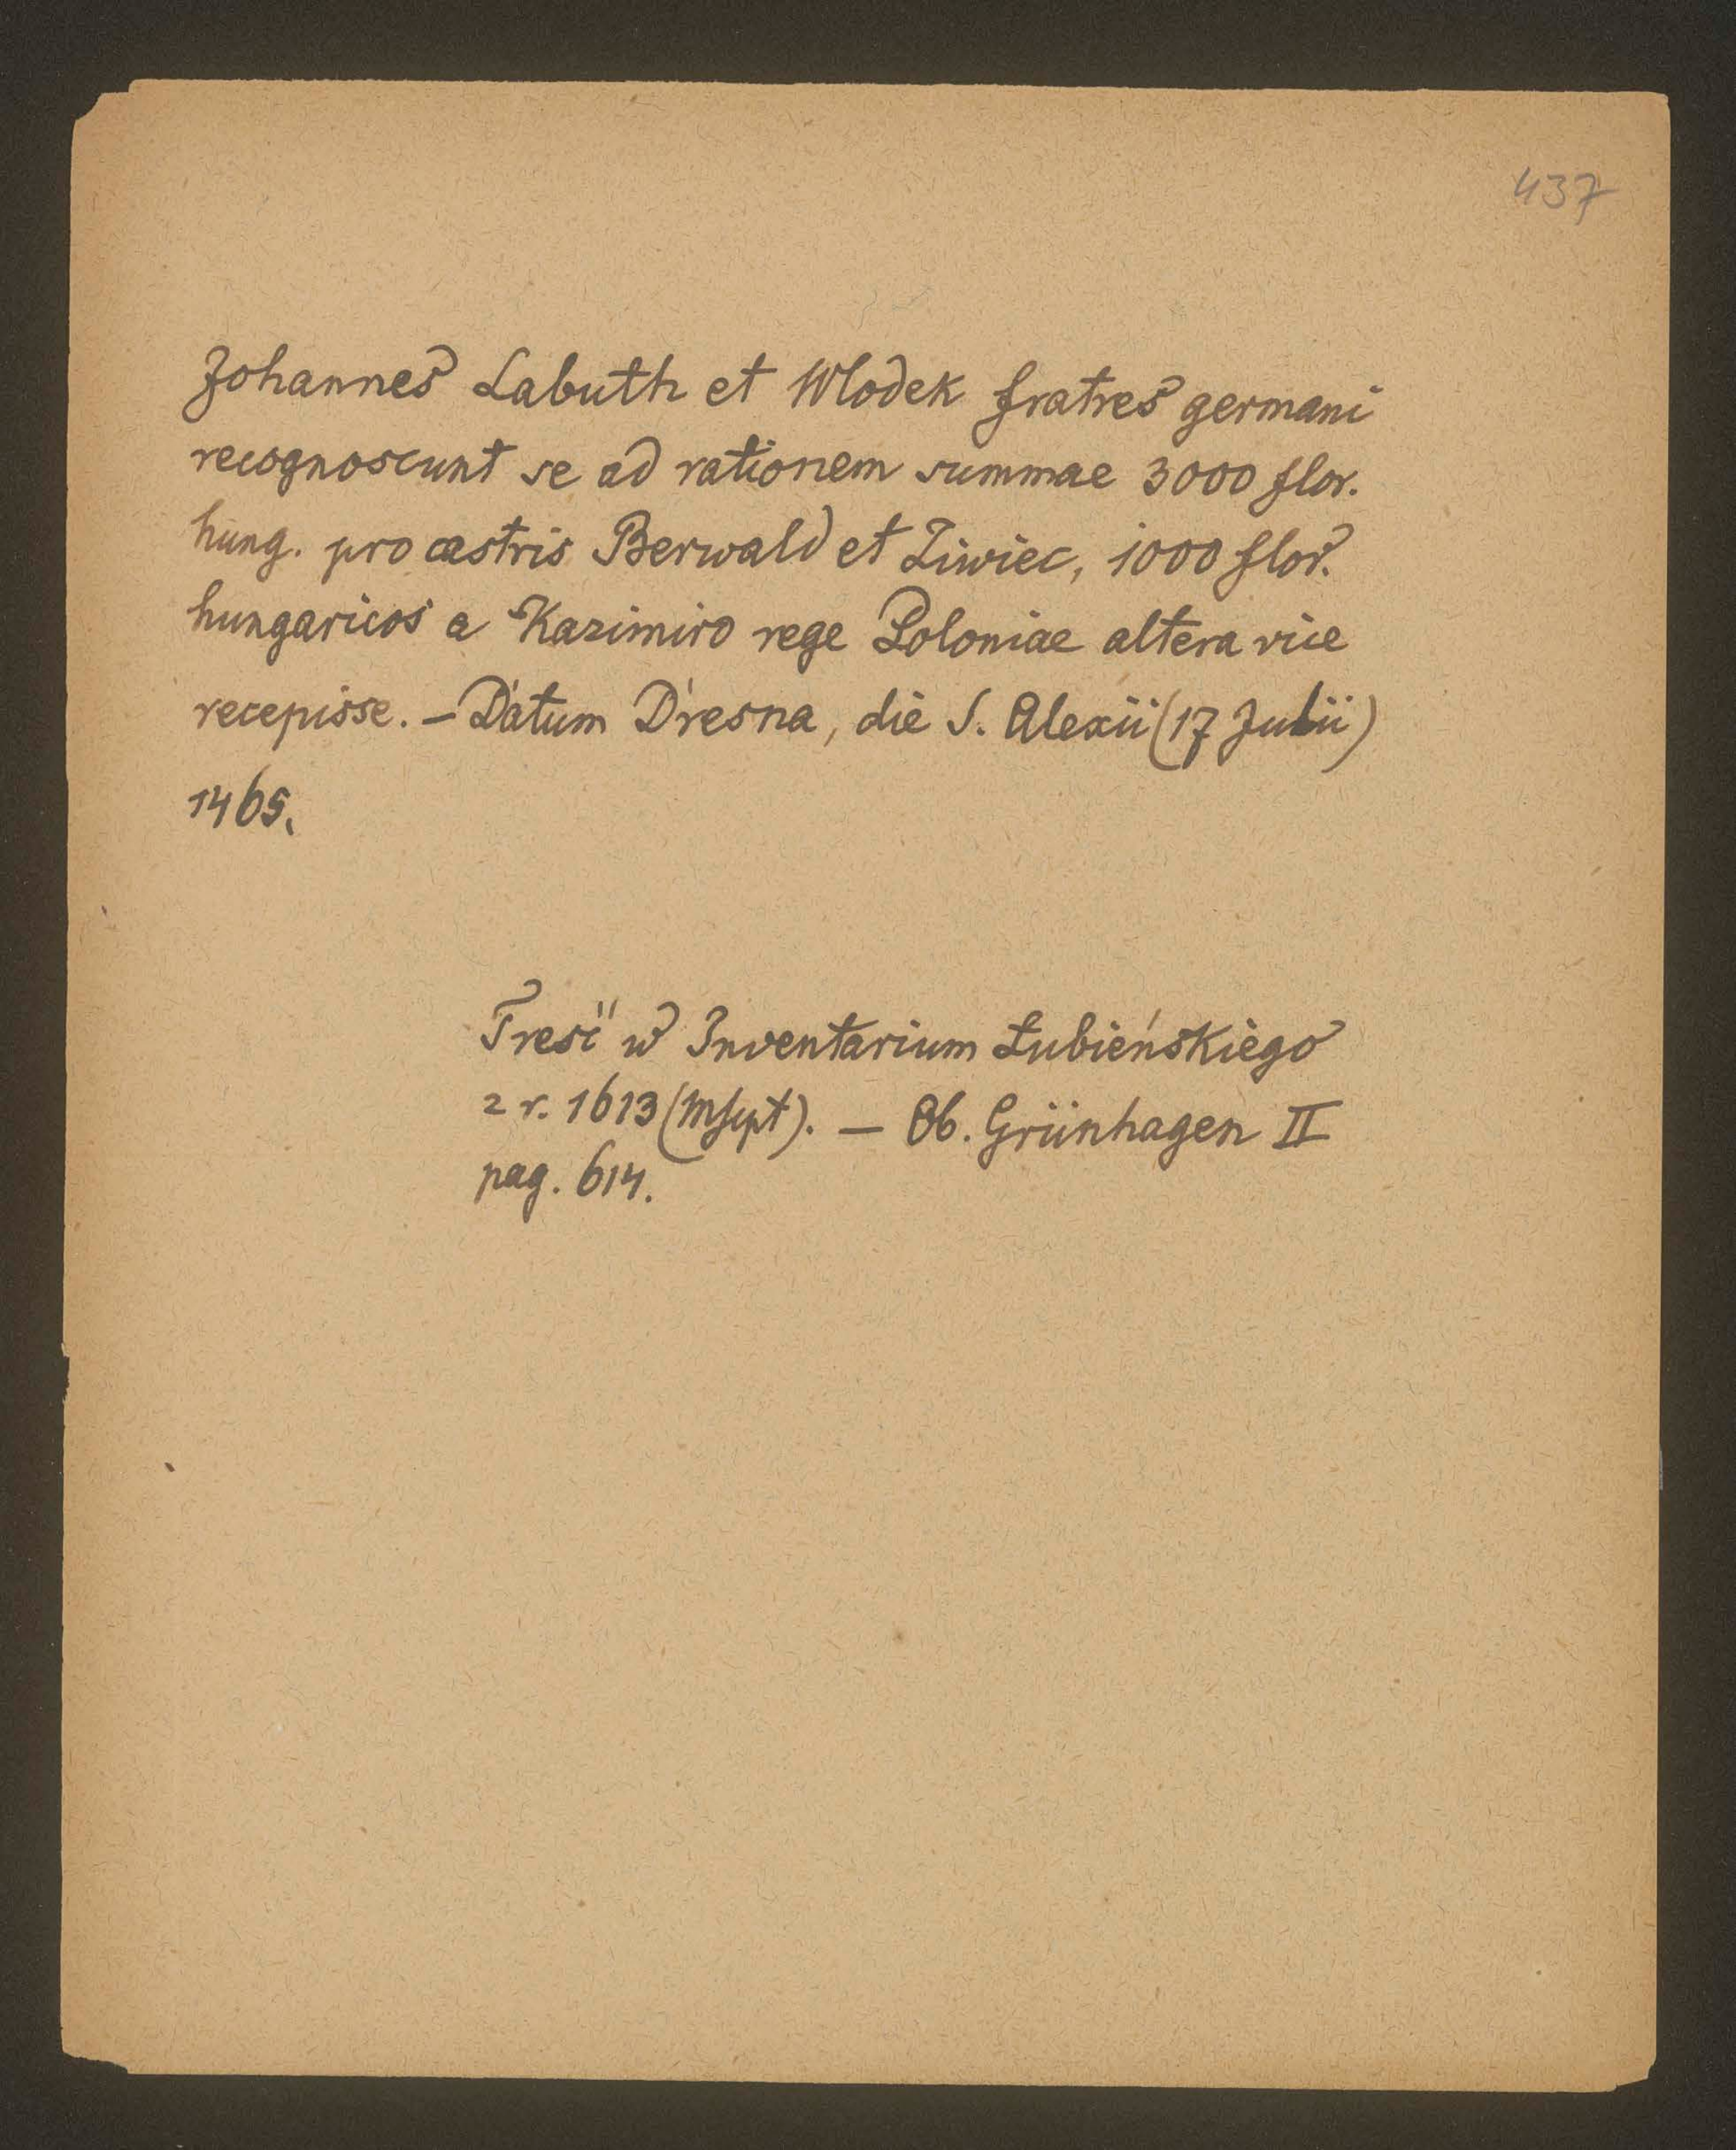 437
Johannes Labuth et Wlodek fratres germani
recognoscunt se ad rationem summae 3000 flor.
hung. pro castris Berwald et Ziwiec, 1000 flor.
hungaricos a Kazimiro rege Poloniae altera vice
recepisse. – Datum Dresna, die S. Alexii (17 Julii)
1465.
Treść w Inventarium Łubieńskiego
z r. 1613 (Mscpt). — Ob. Grünhagen II
pag. 614.